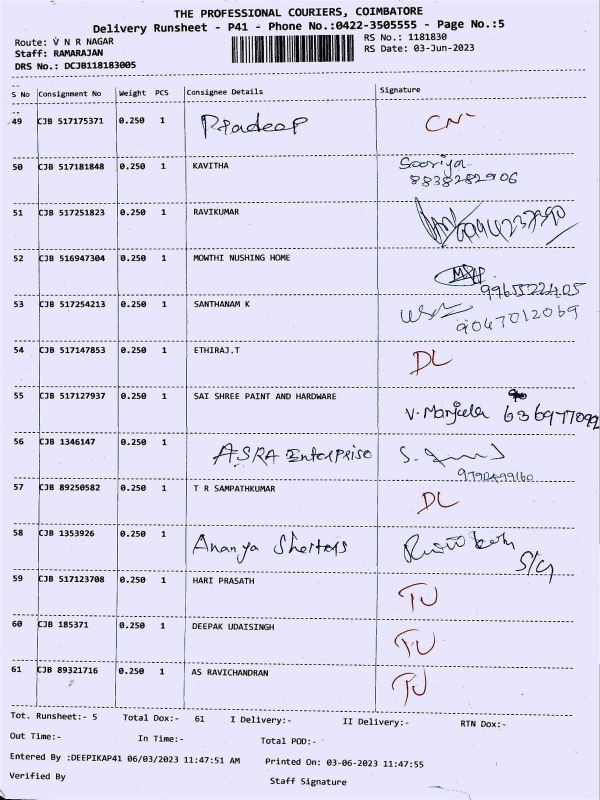 THE PROFESSIONAL COURIERS, COIMBATORE
Delivery Runsheet - P41 - Phone No.:0422-3505555 - Page No.:5
Route: V N R NAGAR
RS No.: 1181830
Staff: RAMARAJAN
RS Date: 03-Jun-2023
DRS No.: DCJB118183005
S No Consignment No Weight PCS Consignee Details Signature
49 CJB 517175371 0.250 1 Pradeep CN
50 CJB 517181848 0.250 1 KAVITHA Sooriya
8838282906
51 CJB 517251823 0.250 1 RAVIKUMAR
52 CJB 516947304 0.250 1 MOWTHI NUSHING HOME
9965522405
53 CJB 517254213 0.250 1 SANTHANAM K
9047012069
54 CJB 517147853 0.250 1 ETHIRAJ.T DL
55 CJB 517127937 0.250 1 SAI SHREE PAINT AND HARDWARE
V. Manjula
56 CJB 1346147 0.250 1 ASRA Enterprise
57 CJB 89250582 0.250 1 T R SAMPATHKUMAR DL
58 CJB 1353926 0.250 1 Ananya Shelters
59 CJB 517123708 0.250 1 HARI PRASATH TU
60 CJB 185371 0.250 1 DEEPAK UDAISINGH TU
61 CJB 89321716 0.250 1 AS RAVICHANDRAN TU
Tot. Runsheet:- 5 Total Dox:- 61 I Delivery:- II Delivery:- RTN Dox:-
Out Time:- In Time:- Total POD:-
Entered By :DEEPIKAP41 06/03/2023 11:47:51 AM Printed On: 03-06-2023 11:47:55
Verified By Staff Signature